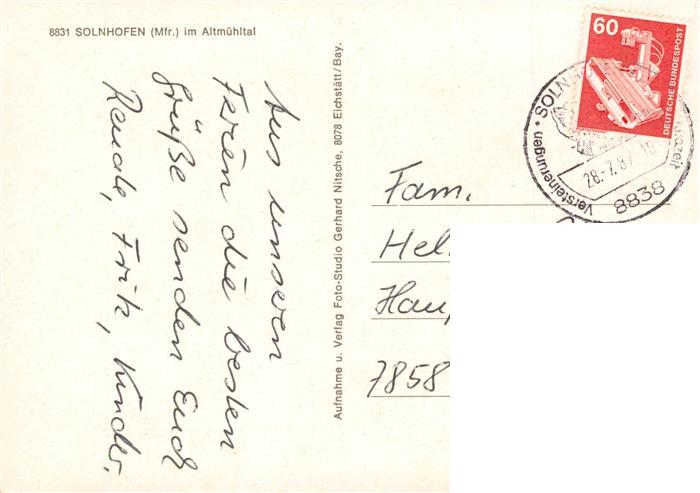 8831 SOLNHOFEN (Mfr.) im Altmühltal
Aus unseren
Ferien die besten
Grüße senden Euch
Fritz, Kinder.
Aufnahme u. Verlag Foto-Studio Gerhard Nitsche, 8078 Eichstätt/Bay.
60
DEUTSCHE BUNDESPOST
SOLNH
Versteinerungen
8838
Fam.
Hel
Hau
7858